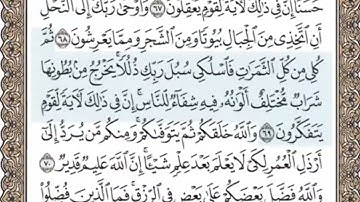 حَسَنًا إِنَّ فِي ذَٰلِكَ لَآيَةً لِّقَوْمٍ يَعْقِلُونَ ٦٧ وَأَوْحَىٰ رَبُّكَ إِلَى النَّحْلِ
أَنِ اتَّخِذِي مِنَ الْجِبَالِ بُيُوتًا وَمِنَ الشَّجَرِ وَمِمَّا يَعْرِشُونَ ٦٨ ثُمَّ
كُلِي مِن كُلِّ الثَّمَرَاتِ فَاسْلُكِي سُبُلَ رَبِّكِ ذُلُلًا يَخْرُجُ مِن بُطُونِهَا
شَرَابٌ مُّخْتَلِفٌ أَلْوَانُهُ فِيهِ شِفَاءٌ لِّلنَّاسِ إِنَّ فِي ذَٰلِكَ لَآيَةً لِّقَوْمٍ
يَتَفَكَّرُونَ ٦٩ وَاللَّهُ خَلَقَكُمْ ثُمَّ يَتَوَفَّاكُمْ وَمِنكُم مَّن يُرَدُّ إِلَىٰ
أَرْذَلِ الْعُمُرِ لِكَيْ لَا يَعْلَمَ بَعْدَ عِلْمٍ شَيْئًا إِنَّ اللَّهَ عَلِيمٌ قَدِيرٌ ٧٠
وَاللَّهُ فَضَّلَ بَعْضَكُمْ عَلَىٰ بَعْضٍ فِي الرِّزْقِ فَمَا الَّذِينَ فُضِّلُوا